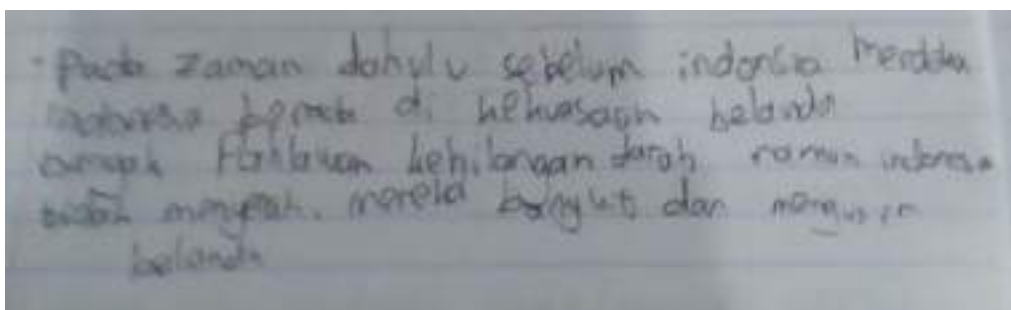 - pada zaman dahulu sebelum indonsia merdeka
indonesia berada di kekuasaan belanda
Pahlawan kehilangan darah namun indonesia
tidak menyerah. mereka bangkit dan mengusir
belanda